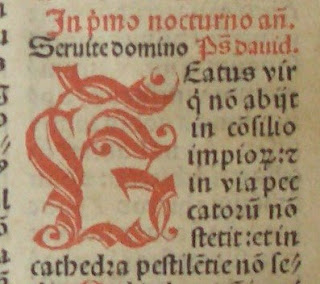 In p̄mo nocturno an̄.
Seruite domino Ps̄ dauid.
BEatus vir
q̄ nō abijt
in cōsilio
impioꝝ: ⁊
in via pec
catorū nō
stetit: et in
cathedra pestilētie nō se⸗